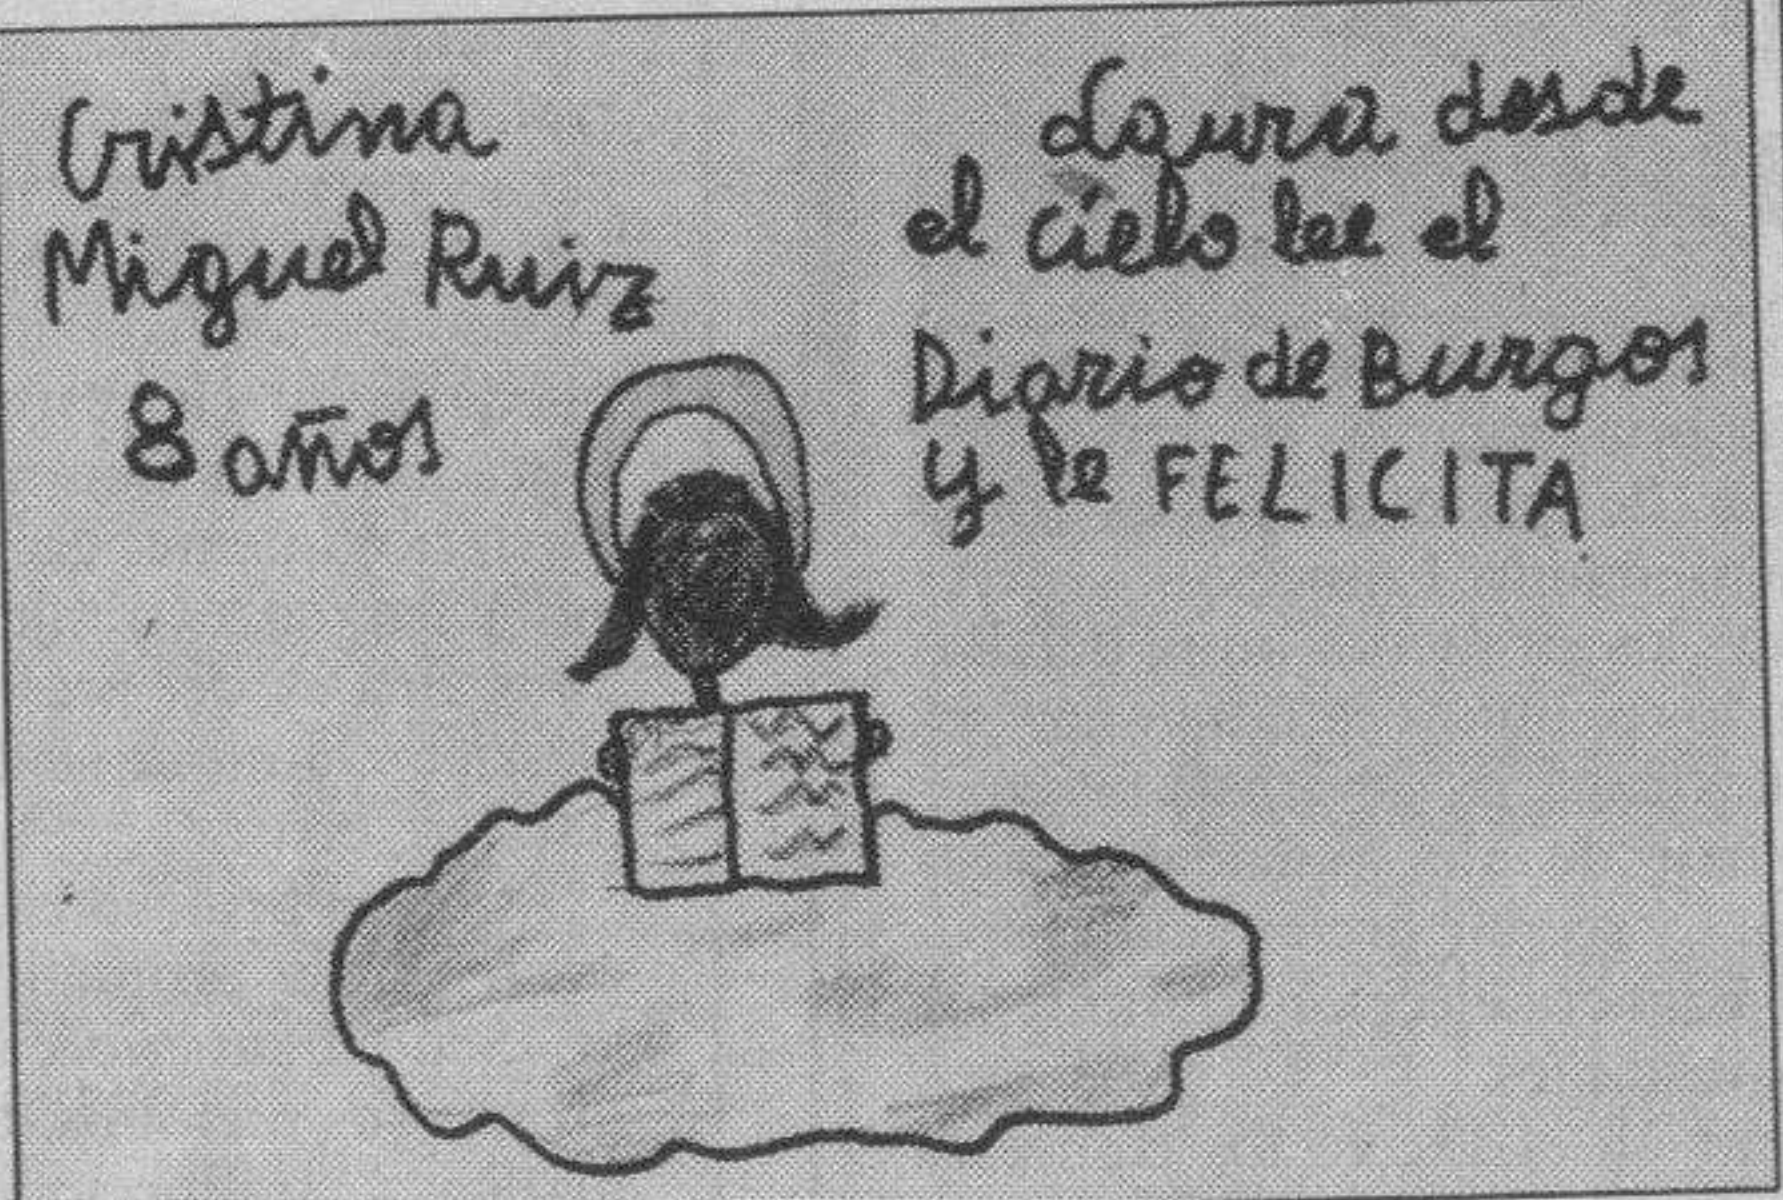 Cristina
Miguel Ruiz
8 años
Laura desde
el cielo lee el
Diario de Burgos
y le FELICITA